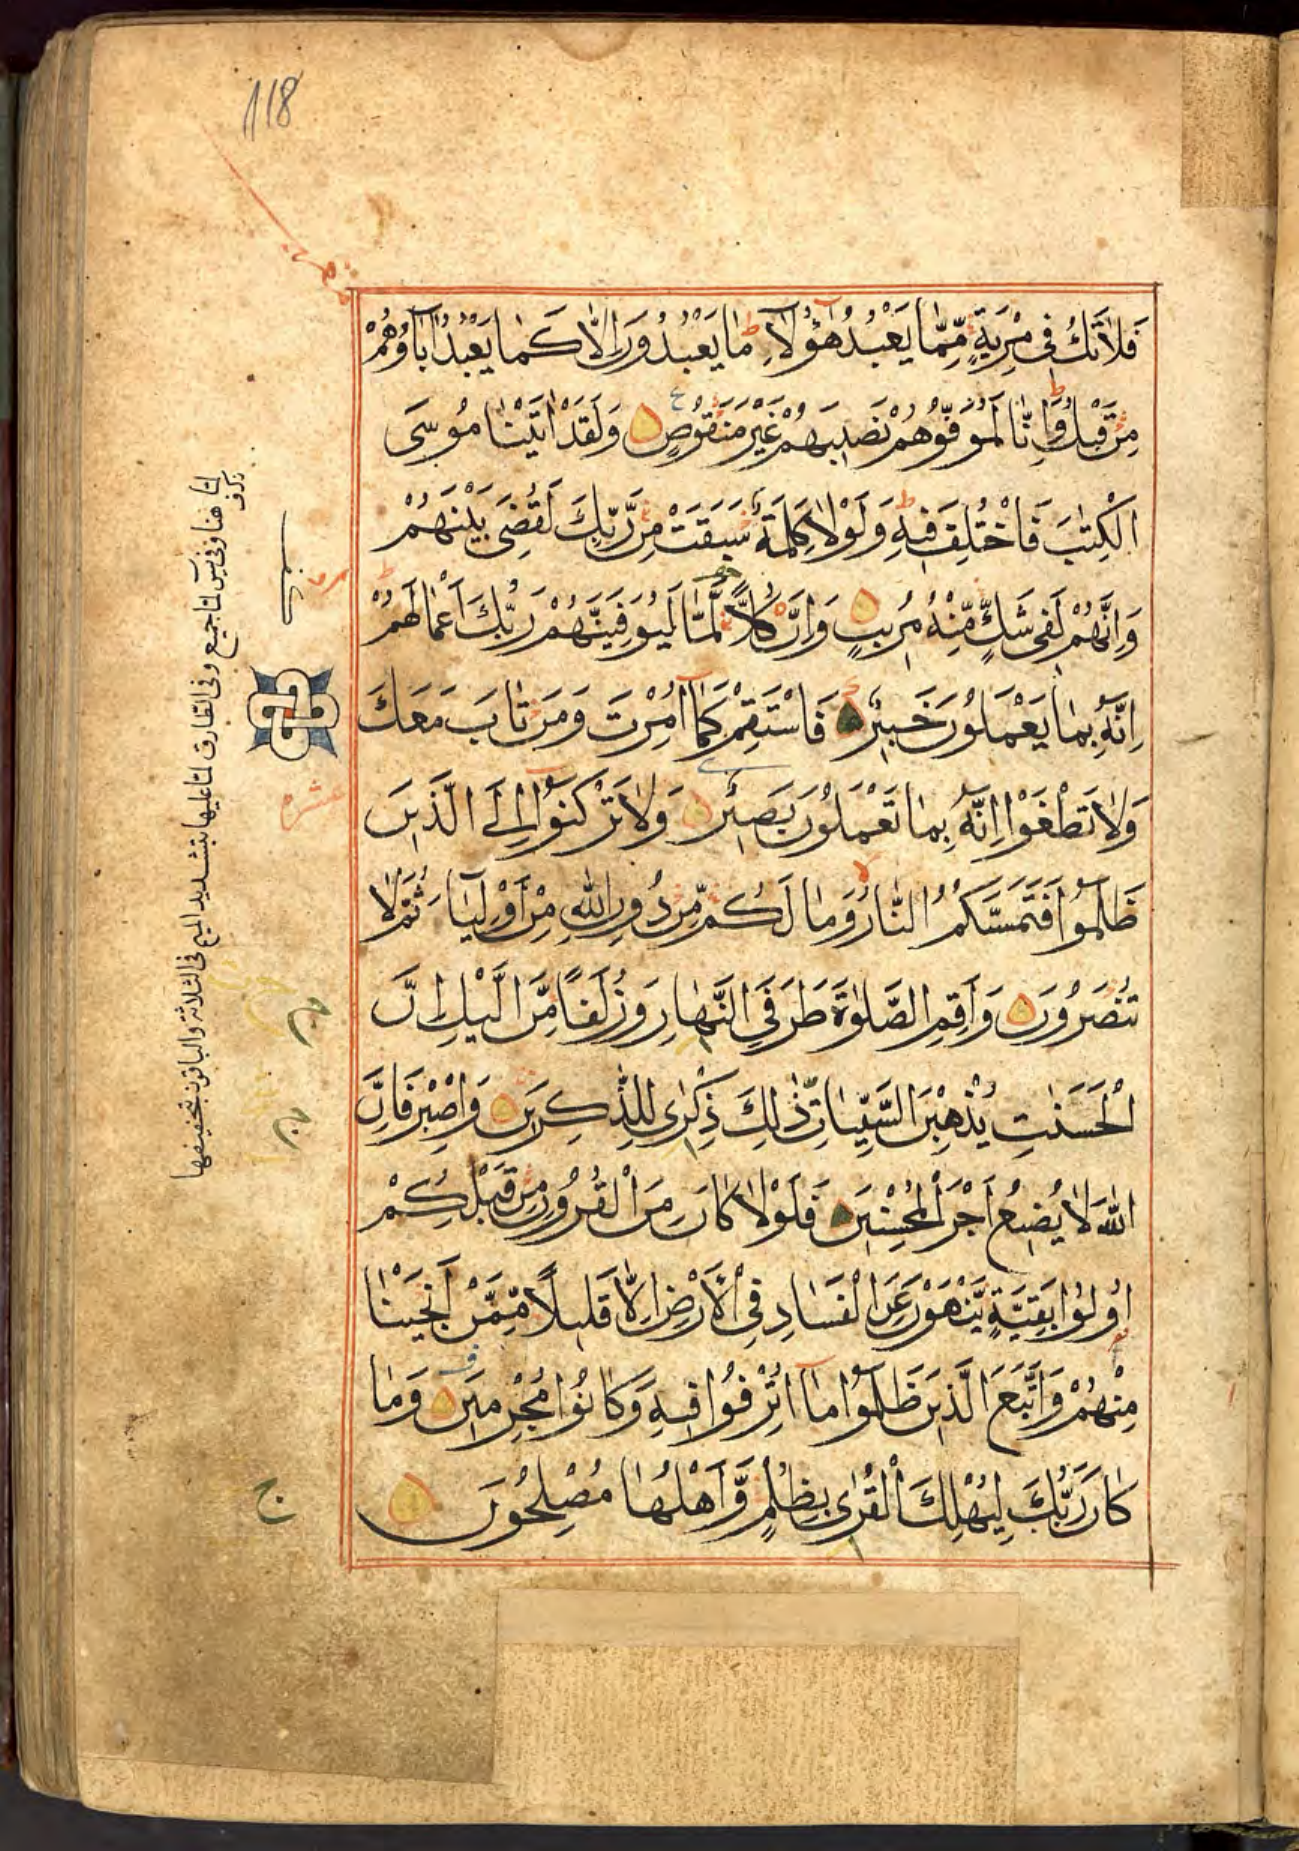 118
فَلَا تَكُ فِي مِرْيَةٍ مِمَّا يَعْبُدُ هٰؤُلَاءِ مَا يَعْبُدُونَ اِلَّا كَمَا يَعْبُدُ اٰبَاؤُهُمْ
مِنْ قَبْلُ وَاِنَّا لَمُوَفُّوهُمْ نَصِيبَهُمْ غَيْرَ مَنْقُوصٍ وَلَقَدْ اٰتَيْنَا مُوسَى
الْكِتٰبَ فَاخْتُلِفَ فِيهِ وَلَوْلَا كَلِمَةٌ سَبَقَتْ مِنْ رَبِّكَ لَقُضِيَ بَيْنَهُمْ
وَاِنَّهُمْ لَفِي شَكٍّ مِنْهُ مُرِيبٍ وَاِنَّ كُلًّا لَمَّا لَيُوَفِّيَنَّهُمْ رَبُّكَ اَعْمَالَهُمْ
اِنَّهُ بِمَا يَعْمَلُونَ خَبِيرٌ فَاسْتَقِمْ كَمَا اُمِرْتَ وَمَنْ تَابَ مَعَكَ
وَلَا تَطْغَوْا اِنَّهُ بِمَا تَعْمَلُونَ بَصِيرٌ وَلَا تَرْكَنُوا اِلَى الَّذِينَ
ظَلَمُوا فَتَمَسَّكُمُ النَّارُ وَمَا لَكُمْ مِنْ دُونِ اللّٰهِ مِنْ اَوْلِيَاءَ ثُمَّ لَا
تُنْصَرُونَ وَاَقِمِ الصَّلٰوةَ طَرَفَيِ النَّهَارِ وَزُلَفًا مِنَ الَّيْلِ اِنَّ
الْحَسَنٰتِ يُذْهِبْنَ السَّيِّئَاتِ ذٰلِكَ ذِكْرٰى لِلذّٰكِرِينَ وَاصْبِرْ فَاِنَّ
اللّٰهَ لَا يُضِيعُ اَجْرَ الْمُحْسِنِينَ فَلَوْلَا كَانَ مِنَ الْقُرُونِ مِنْ قَبْلِكُمْ
اُولُوا بَقِيَّةٍ يَنْهَوْنَ عَنِ الْفَسَادِ فِي الْاَرْضِ اِلَّا قَلِيلًا مِمَّنْ اَنْجَيْنَا
مِنْهُمْ وَاتَّبَعَ الَّذِينَ ظَلَمُوا مَا اُتْرِفُوا فِيهِ وَكَانُوا مُجْرِمِينَ وَمَا
كَانَ رَبُّكَ لِيُهْلِكَ الْقُرٰى بِظُلْمٍ وَاَهْلُهَا مُصْلِحُونَ
لما هنا وفي يس لما جميع وفي الطارق لما عليها بتشديد الميم في الثلاثة والباقون بتخفيفها
عشره
ج